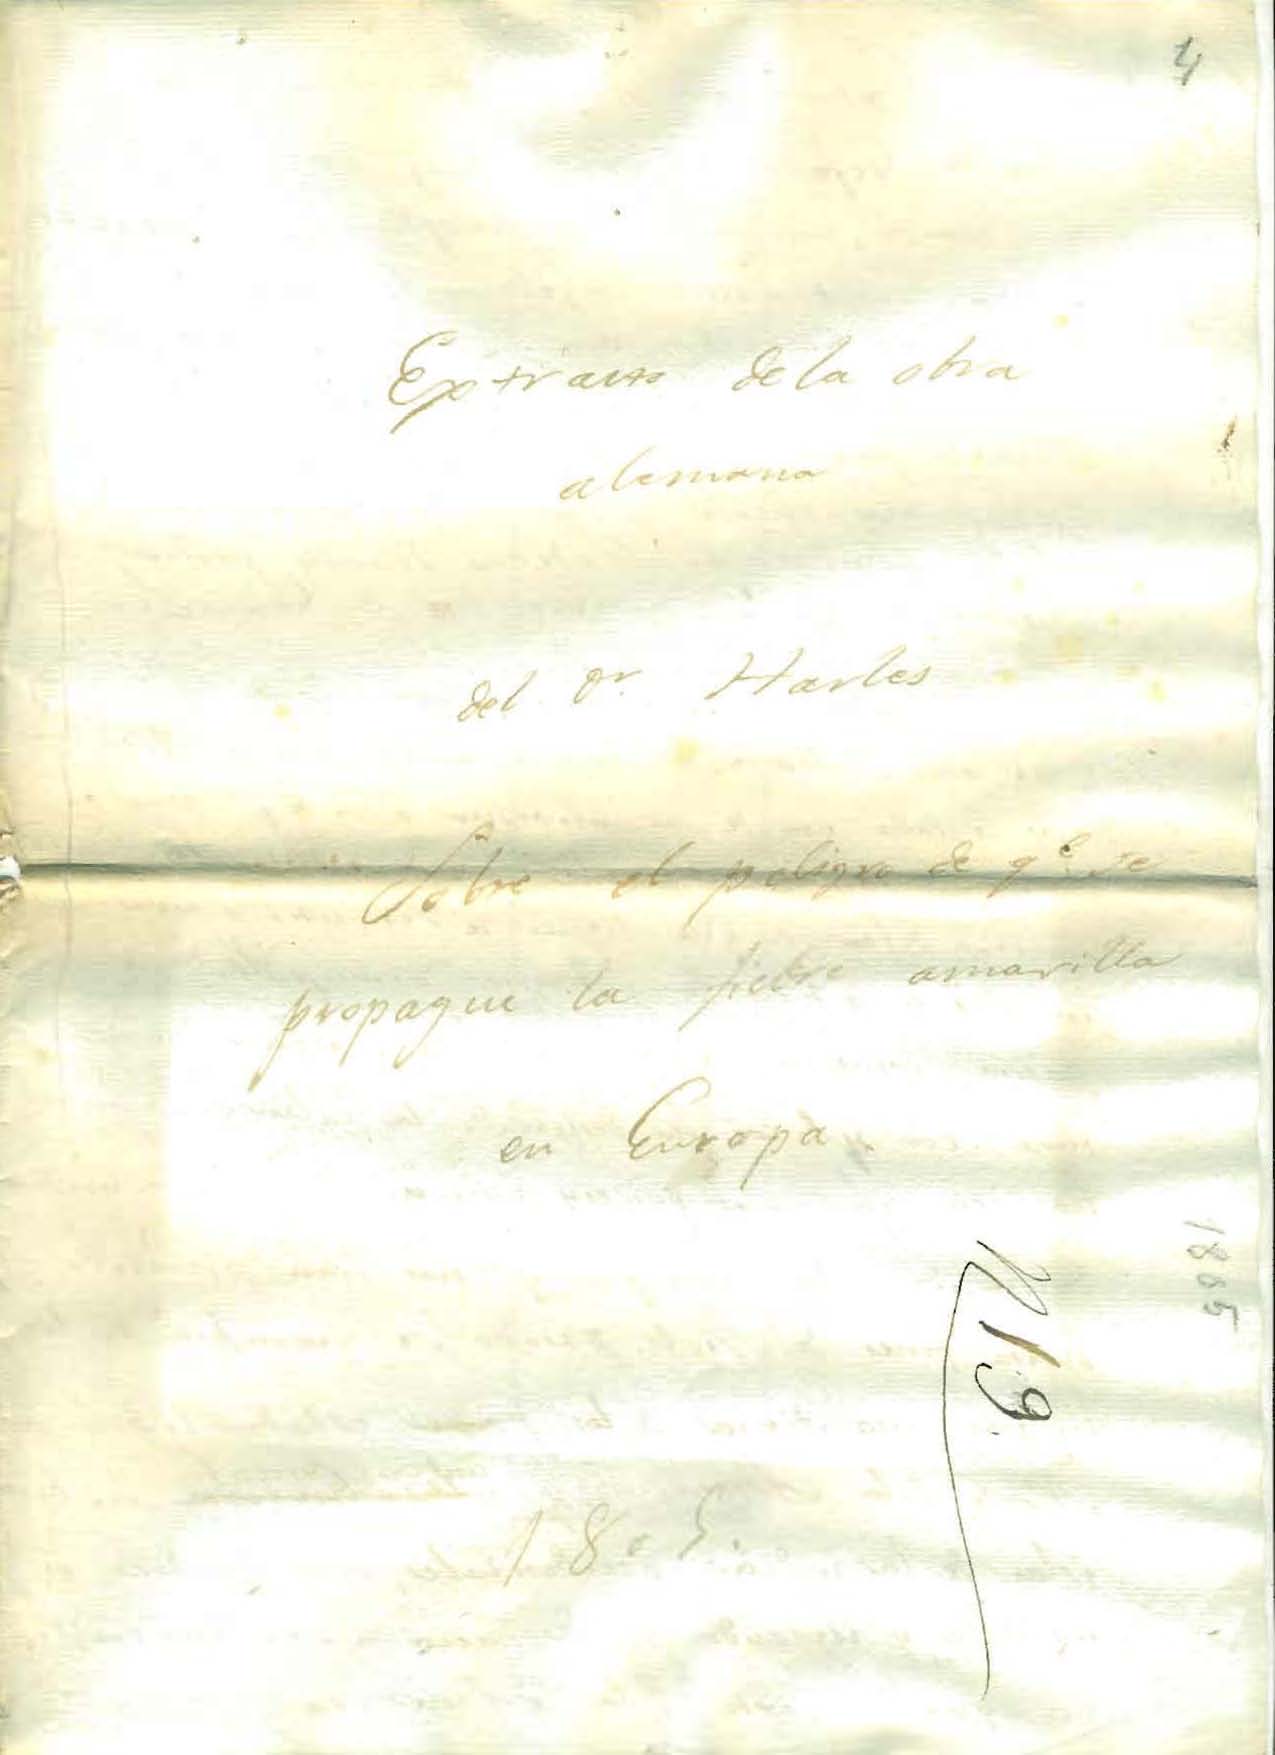 4
Extracto de la obra
alemana
del Dr. Harles
Sobre el peligro de qe. se
propague la fiebre amarilla
en Europa.
1805
N 19.
1805.